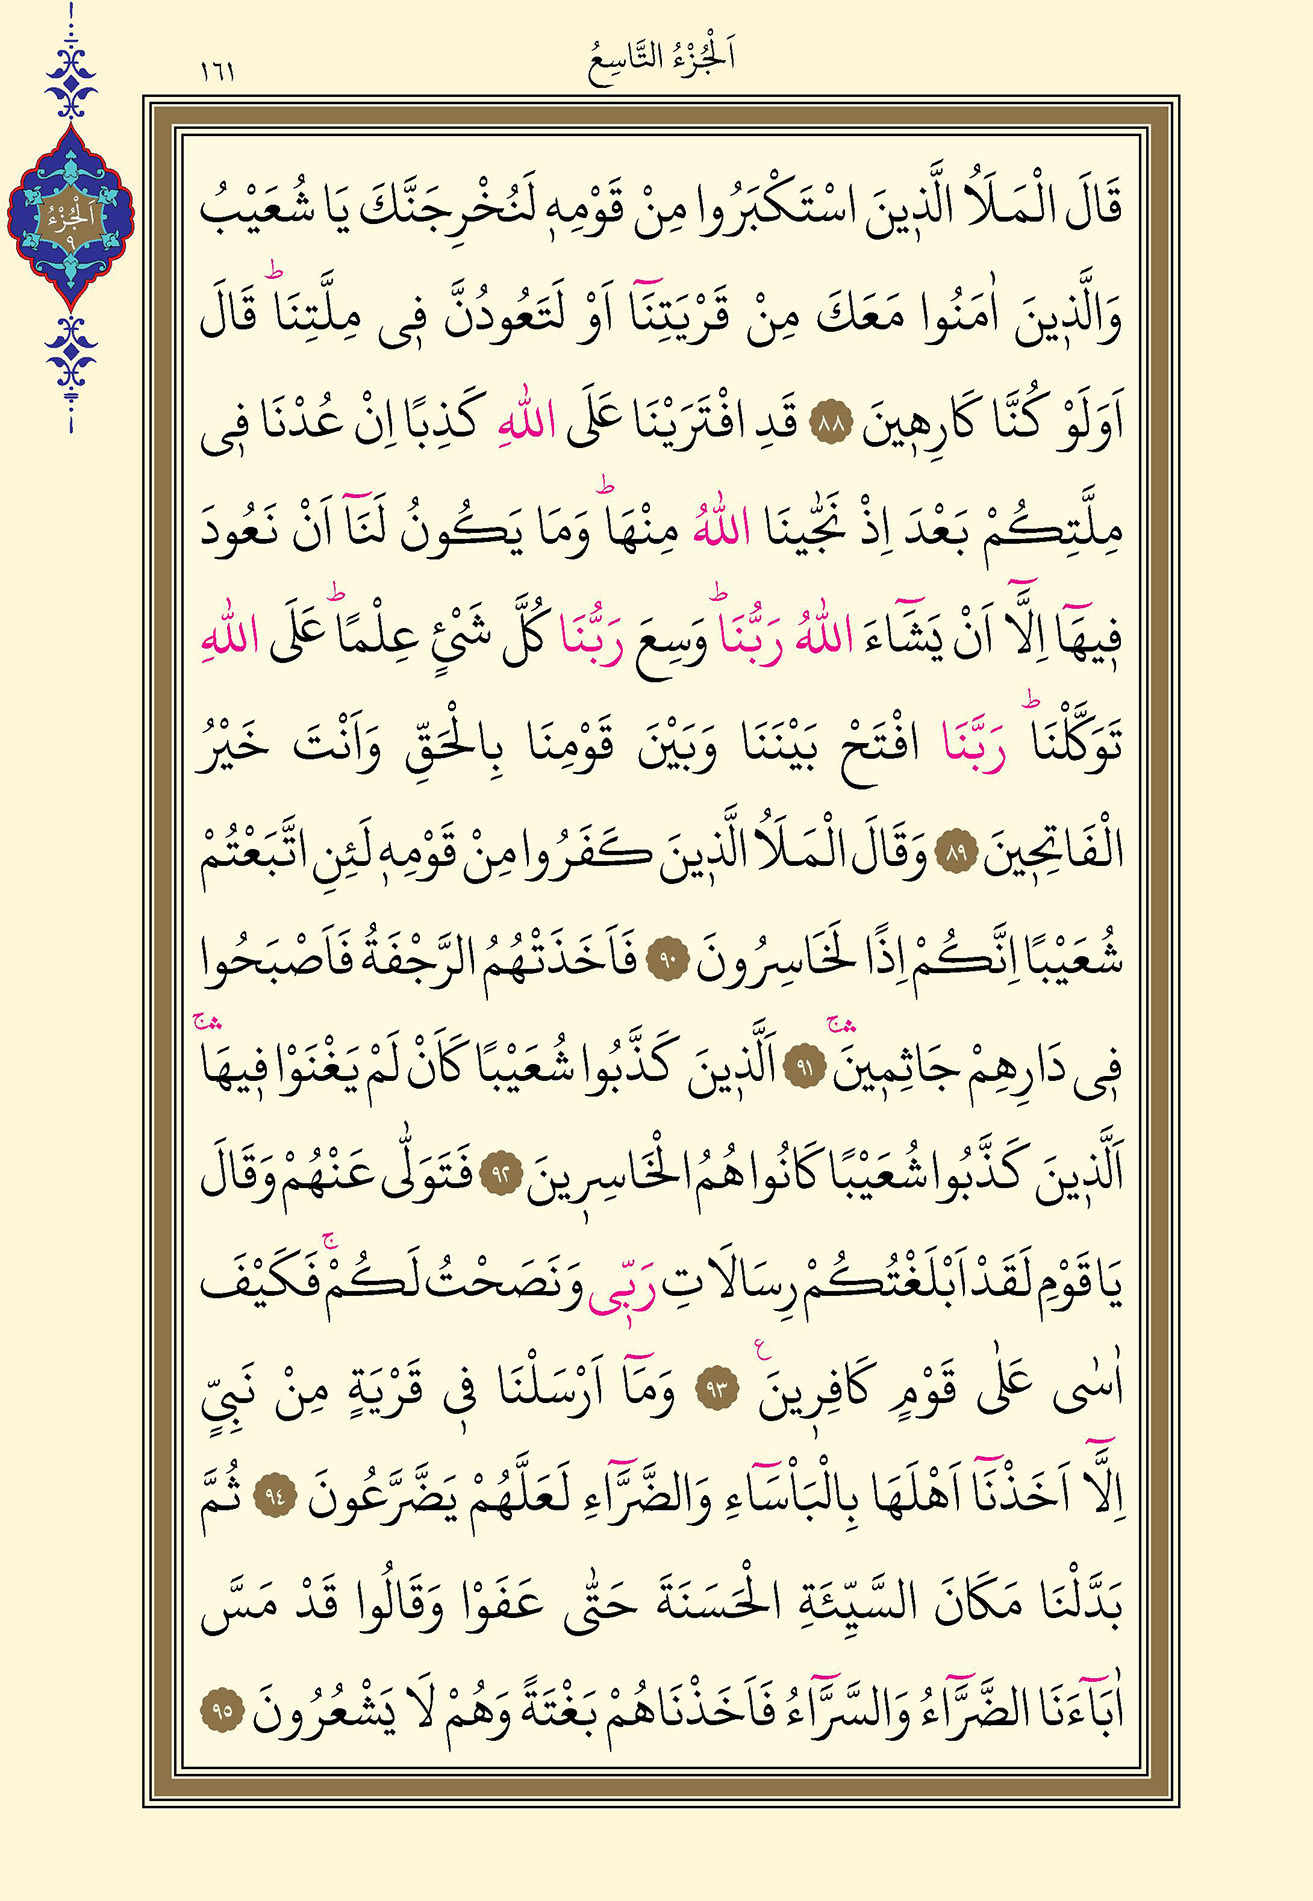 اَلْجُزْءُ التَّاسِعُ
١٦١
اَلْجُزْءُ
٩
قَالَ الْمَلَاُ الَّذ۪ينَ اسْتَكْبَرُوا مِنْ قَوْمِه۪ لَنُخْرِجَنَّكَ يَا شُعَيْبُ
وَالَّذ۪ينَ اٰمَنُوا مَعَكَ مِنْ قَرْيَتِنَٓا اَوْ لَتَعُودُنَّ ف۪ي مِلَّتِنَاۜ قَالَ
اَوَلَوْ كُنَّا كَارِه۪ينَ ﴿٨٨﴾ قَدِ افْتَرَيْنَا عَلَى اللّٰهِ كَذِبًا اِنْ عُدْنَا ف۪ي
مِلَّتِكُمْ بَعْدَ اِذْ نَجّٰينَا اللّٰهُ مِنْهَاۜ وَمَا يَكُونُ لَنَٓا اَنْ نَعُودَ
ف۪يهَٓا اِلَّٓا اَنْ يَشَٓاءَ اللّٰهُ رَبُّنَاۜ وَسِعَ رَبُّنَا كُلَّ شَيْءٍ عِلْمًاۜ عَلَى اللّٰهِ
تَوَكَّلْنَاۜ رَبَّنَا افْتَحْ بَيْنَنَا وَبَيْنَ قَوْمِنَا بِالْحَقِّ وَاَنْتَ خَيْرُ
الْفَاتِح۪ينَ ﴿٨٩﴾ وَقَالَ الْمَلَاُ الَّذ۪ينَ كَفَرُوا مِنْ قَوْمِه۪ لَئِنِ اتَّبَعْتُمْ
شُعَيْبًا اِنَّكُمْ اِذًا لَخَاسِرُونَ ﴿٩٠﴾ فَاَخَذَتْهُمُ الرَّجْفَةُ فَاَصْبَحُوا
ف۪ي دَارِهِمْ جَاثِم۪ينَۛۚ ﴿٩١﴾ اَلَّذ۪ينَ كَذَّبُوا شُعَيْبًا كَاَنْ لَمْ يَغْنَوْا ف۪يهَاۛۚ
اَلَّذ۪ينَ كَذَّبُوا شُعَيْبًا كَانُوا هُمُ الْخَاسِر۪ينَ ﴿٩٢﴾ فَتَوَلّٰى عَنْهُمْ وَقَالَ
يَا قَوْمِ لَقَدْ اَبْلَغْتُكُمْ رِسَالَاتِ رَبّ۪ي وَنَصَحْتُ لَكُمْۚ فَكَيْفَ
اٰسٰى عَلٰى قَوْمٍ كَافِر۪ينَ ع ﴿٩٣﴾ وَمَٓا اَرْسَلْنَا ف۪ي قَرْيَةٍ مِنْ نَبِيٍّ
اِلَّٓا اَخَذْنَٓا اَهْلَهَا بِالْبَأْسَٓاءِ وَالضَّرَّٓاءِ لَعَلَّهُمْ يَضَّرَّعُونَ ﴿٩٤﴾ ثُمَّ
بَدَّلْنَا مَكَانَ السَّيِّئَةِ الْحَسَنَةَ حَتّٰى عَفَوْا وَقَالُوا قَدْ مَسَّ
اٰبَٓاءَنَا الضَّرَّٓاءُ وَالسَّرَّٓاءُ فَاَخَذْنَاهُمْ بَغْتَةً وَهُمْ لَا يَشْعُرُونَ ﴿٩٥﴾